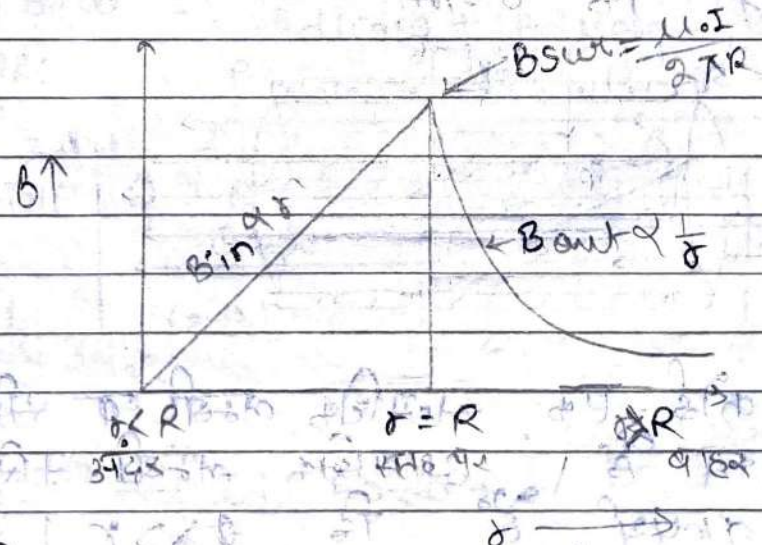 Bsur = μ₀I / 2πR
B↑
Bin ∝ r
← Bout ∝ 1/r
r < R r = R r > R
अन्दर सतह पर बाहर
r →